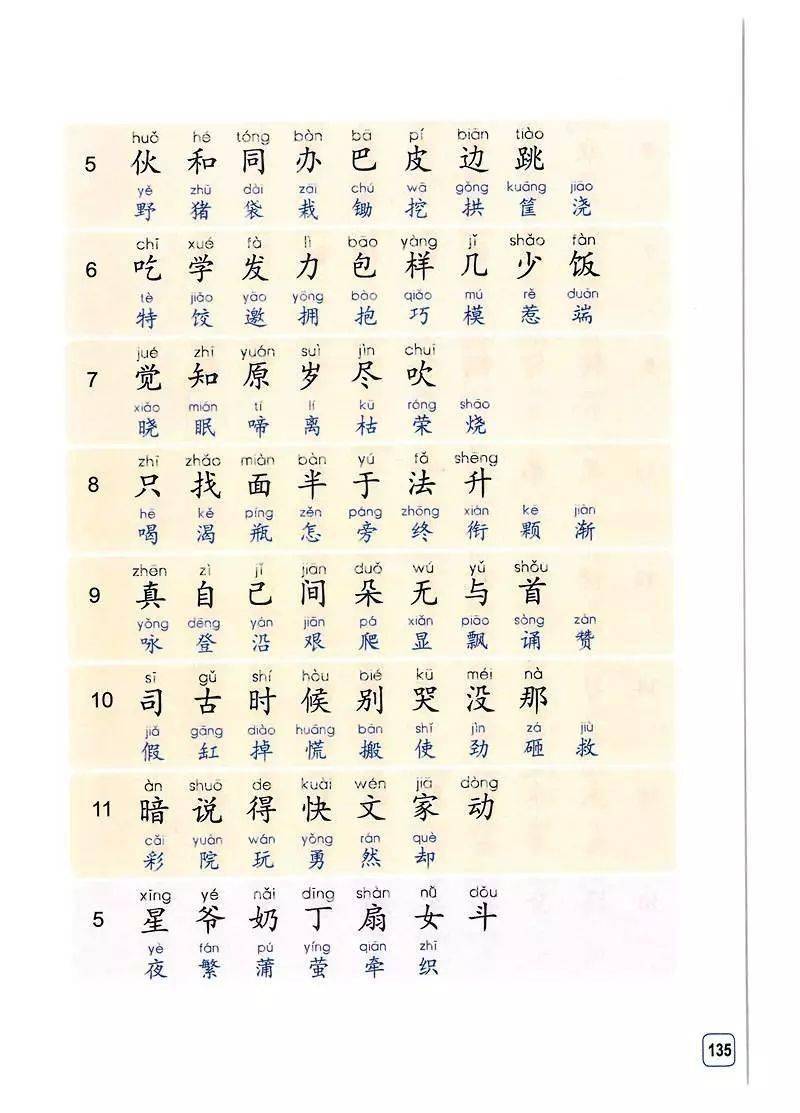 huǒ hé tóng bàn bā pí biān tiào
5 伙 和 同 办 巴 皮 边 跳
yě zhū dài zāi chú wā gǒng kuāng jiāo
野 猪 袋 栽 锄 挖 拱 筐 浇
chī xué fā lì bāo yàng jǐ shǎo fàn
6 吃 学 发 力 包 样 几 少 饭
tè jiǎo yāo yōng bào qiǎo mú rě duān
特 饺 邀 拥 抱 巧 模 惹 端
jué zhī yuán suì jìn chuī
7 觉 知 原 岁 尽 吹
xiǎo mián tí lí kū róng shāo
晓 眠 啼 离 枯 荣 烧
zhǐ zhǎo miàn bàn yú fǎ shēng
8 只 找 面 半 于 法 升
hē kě píng zěn páng zhōng xián kē jiàn
喝 渴 瓶 怎 旁 终 衔 颗 渐
zhēn zì jǐ jiān duǒ wú yǔ shǒu
9 真 自 己 间 朵 无 与 首
yǒng dēng yán jiān pá xiǎn piāo sòng zàn
咏 登 沿 艰 爬 显 飘 诵 赞
sī gǔ shí hòu bié kū méi nà
10 司 古 时 候 别 哭 没 那
jiǎ gāng diào huāng bān shǐ jìn zá jiù
假 缸 掉 慌 搬 使 劲 砸 救
àn shuō de kuài wén jiā dòng
11 暗 说 得 快 文 家 动
cǎi yuàn wán yǒng rán què
彩 院 玩 勇 然 却
xīng yé nǎi dīng shàn nǚ dǒu
5 星 爷 奶 丁 扇 女 斗
yè fán pú yíng qiān zhī
夜 繁 蒲 萤 牵 织
135